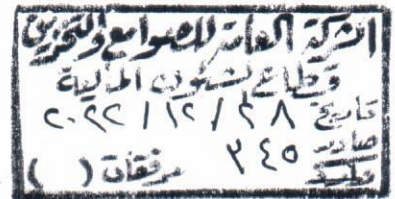 الشركة العامة للصوامع والتخزين
قطاع الشئون المالية
تاريخ ٢٨ / ١٢ / ٢٠٢٢
صادر ٣٤٥ مرفقات ( )